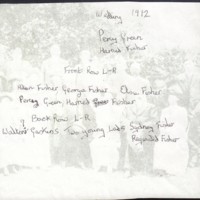 Wedding 1912
Percy Green
Harriet Fisher
Front Row L-R
Fisher George Fisher Fisher
Percy Green, Harriet Fisher
Back Row L-R
Two young Lads Sydney Fisher
Reginald Fisher